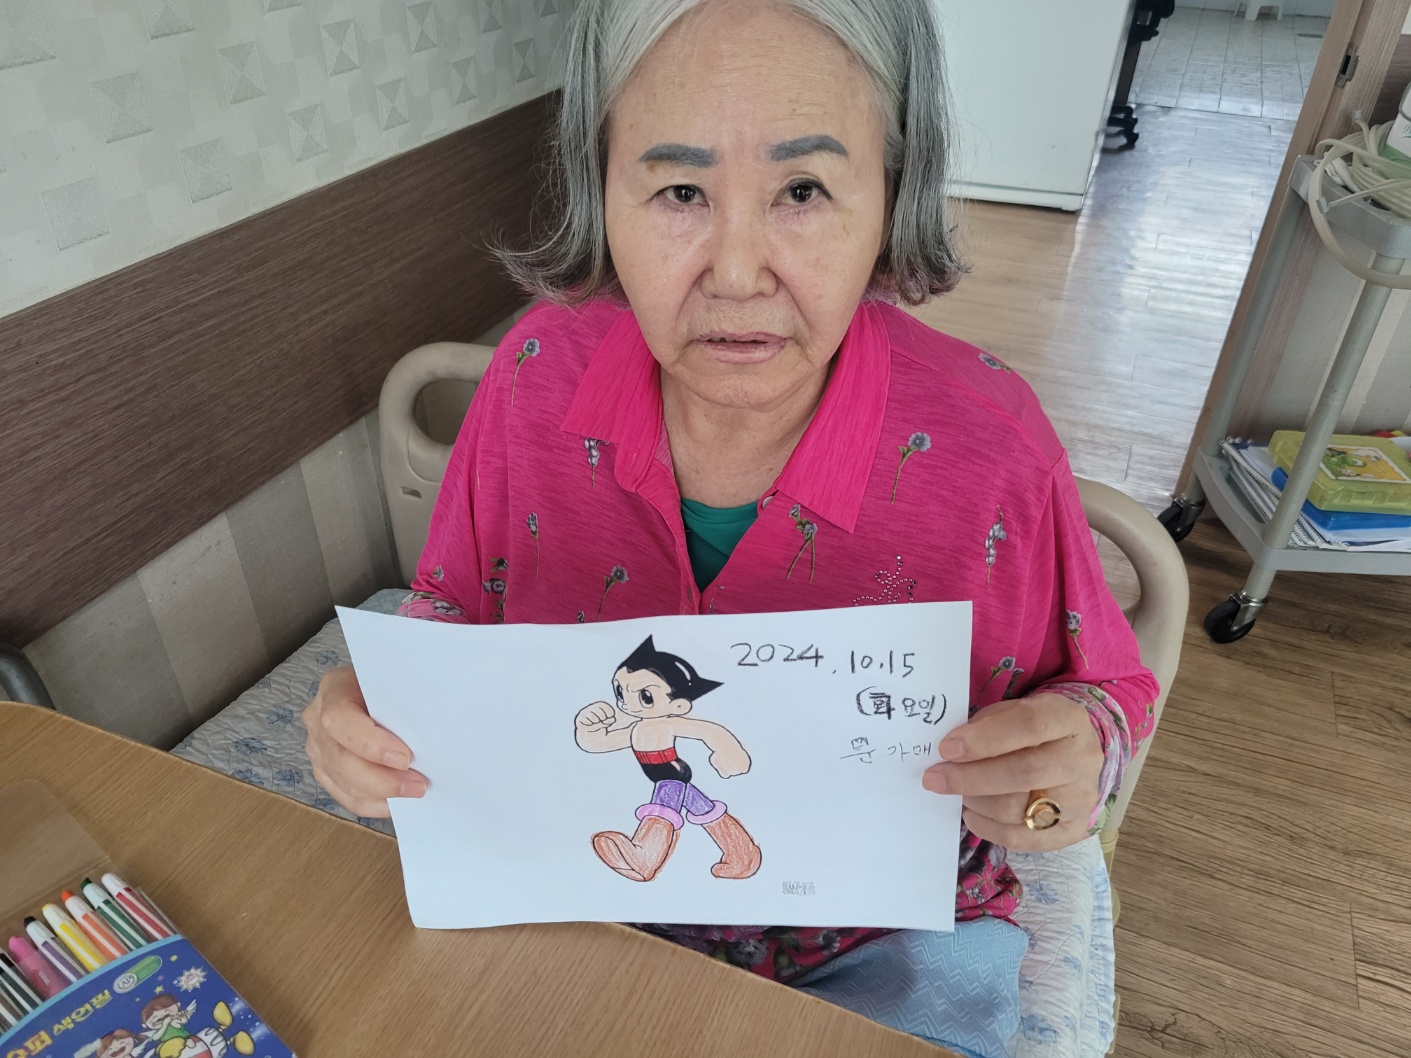 2024.10.15
(화요일)
문가매
색연필